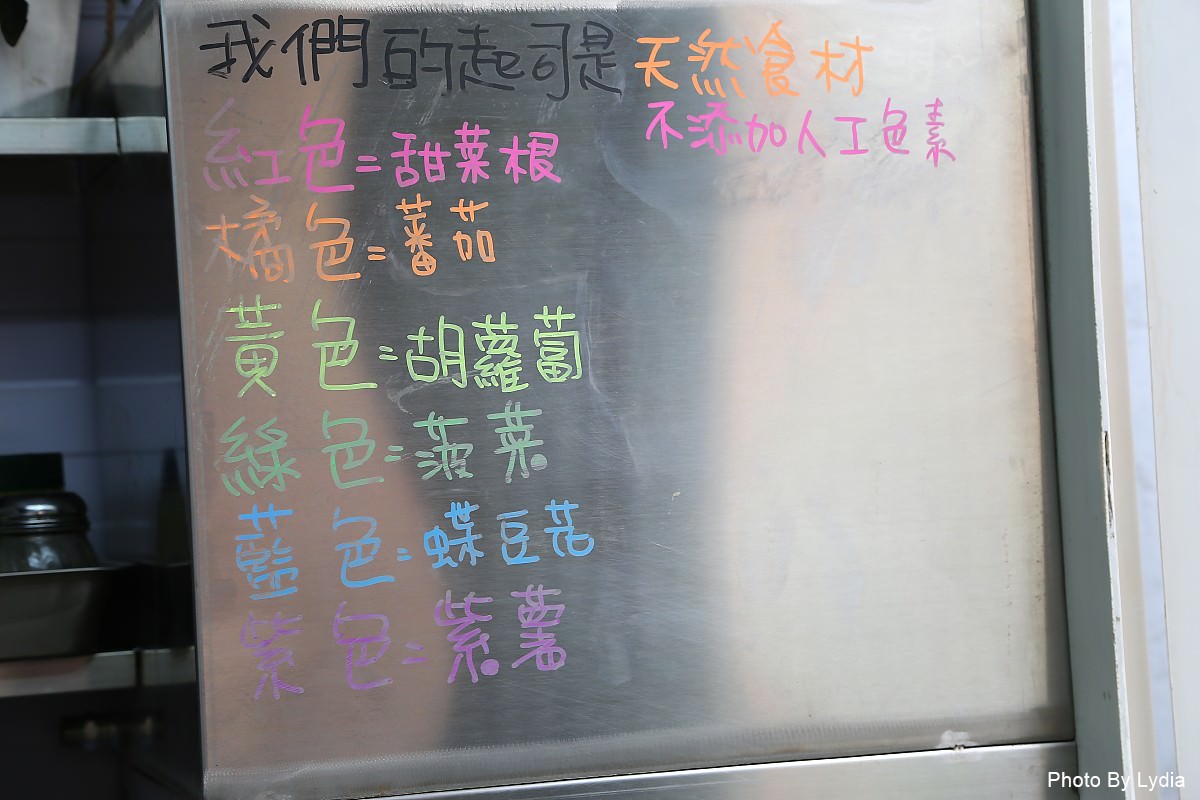 我們的起司是 天然食材
不添加人工色素
紅色=甜菜根
橘色=蕃茄
黃色=胡蘿蔔
綠色=菠菜
藍色=蝶豆花
紫色=紫薯
Photo By Lydia